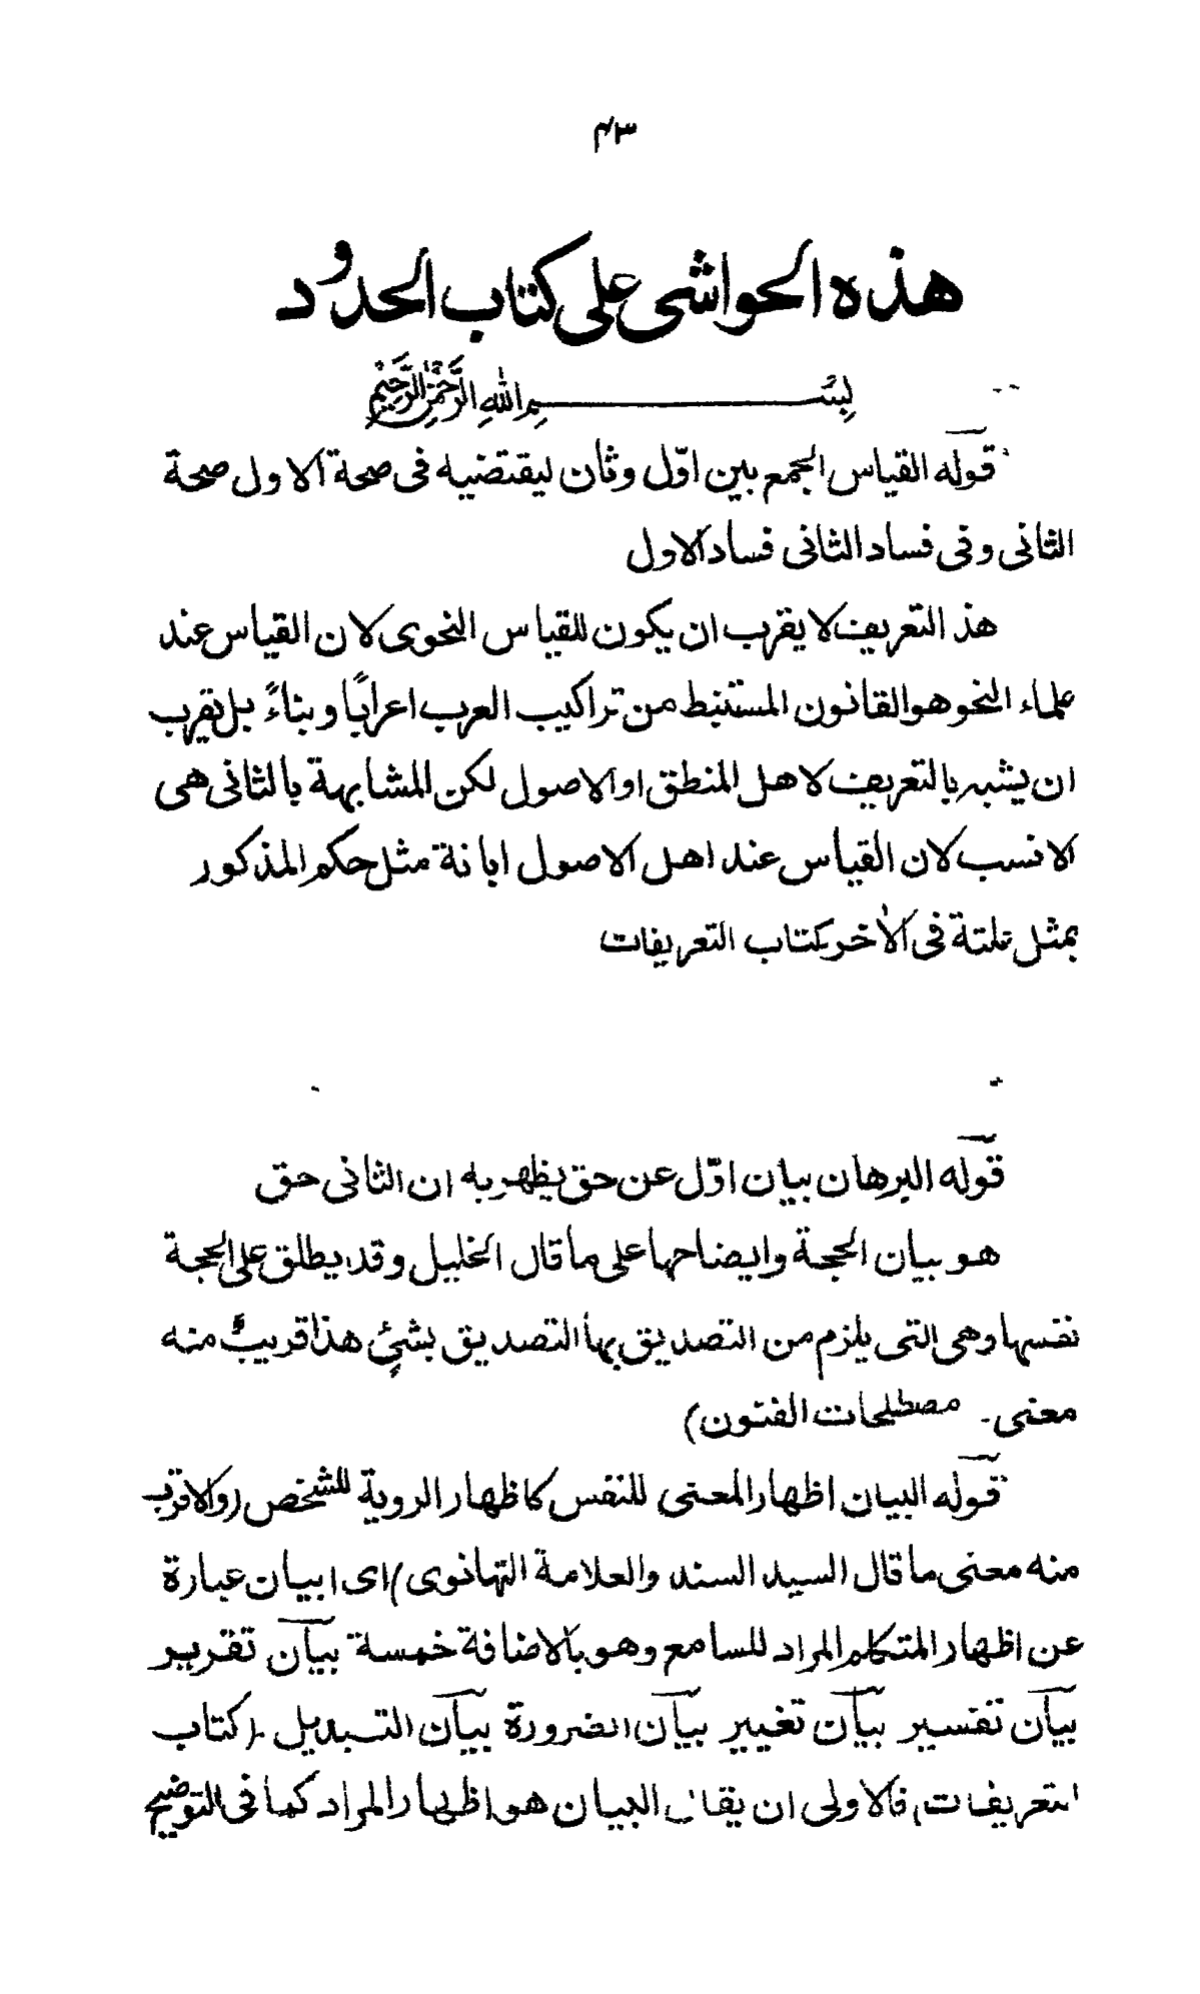 ۴۳
هذه الحواشى على كتاب الحدود
بسم الله الرحمن الرحيم
قوله القياس الجمع بين اوّل وثان ليقتضيه فى صحة الاول صحة
الثانى وفى فساد الثانى فساد الاول
هذ التعريف لا يقرب ان يكون للقياس النحوى لان القياس عند
علماء النحو هو القانون المستنبط من تراكيب العرب اعرابًا وبناءً بل يقرب
ان يشبه بالتعريف لاهل المنطق او الاصول لكن المشابهة بالثانى هى
الانسب لان القياس عند اهل الاصول ابانة مثل حكم المذكور
بمثل علته فى الأخر كتاب التعريفات
قوله البرهان بيان اوّل عن حق يظهر به ان الثانى حق
هو بيان الحجة وايضاحها على ما قال الخليل وقد يطلق على الحجة
نفسها وهى التى يلزم من التصديق بها التصديق بشئ هذا قريبٌ منه
معنى۔ مصطلحات الفنون)
قوله البيان اظهار المعنى للنفس كاظهار الروية للشخص (والاقرب
منه معنى ما قال السيد السند والعلامة التهانوى) اى ابيان عبارة
عن اظهار المتكلم المراد للسامع وهو بالاضافة خمسة بيان تقرير
بيان تفسير بيان تغيير بيان الضرورة بيان التبديل۔ (كتاب
التعريفات) فالاولى ان يقال البيان هو اظهار المراد كما فى التوضيح